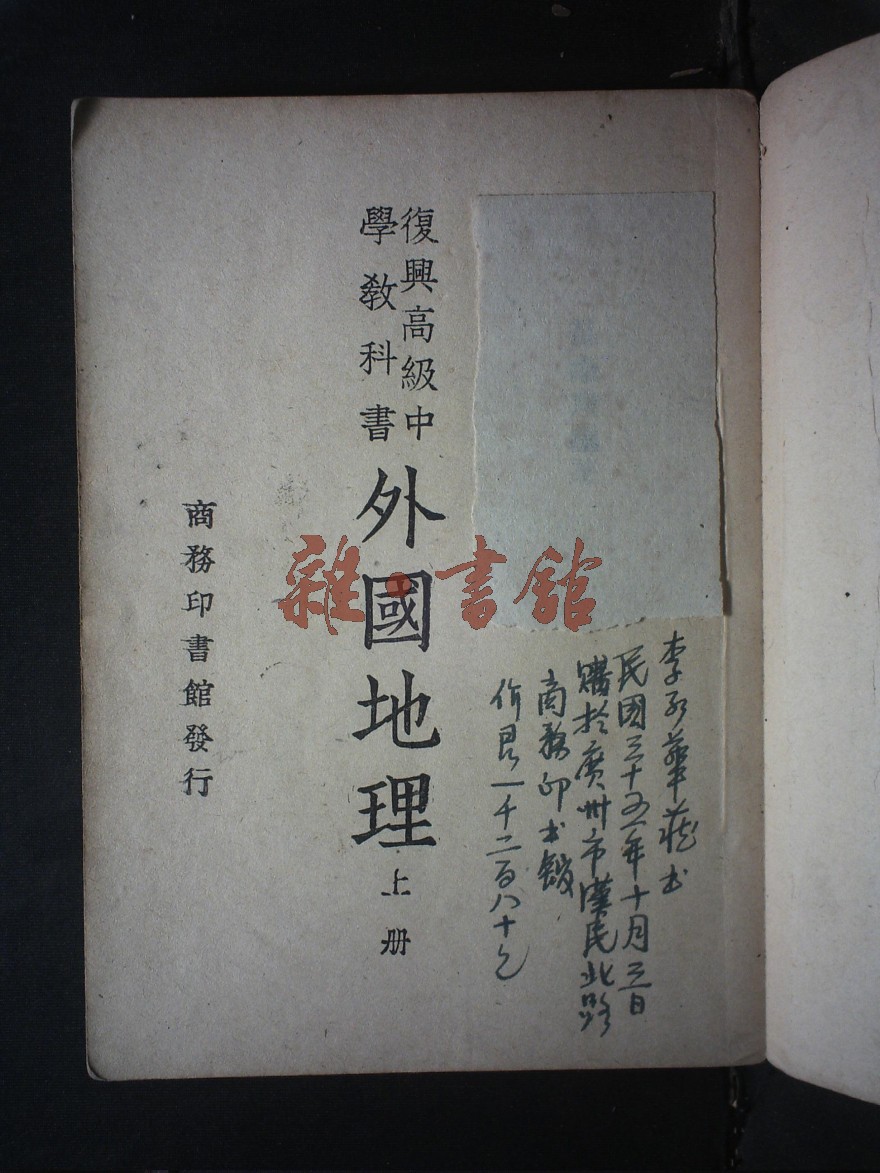 李 華藏书
民國三十五年十月三日
購於廣州市漢民北路
商務印书館
價 一千二百八十元
復興高級中
學教科書
外國地理上册
商務印書館發行
雜·書館